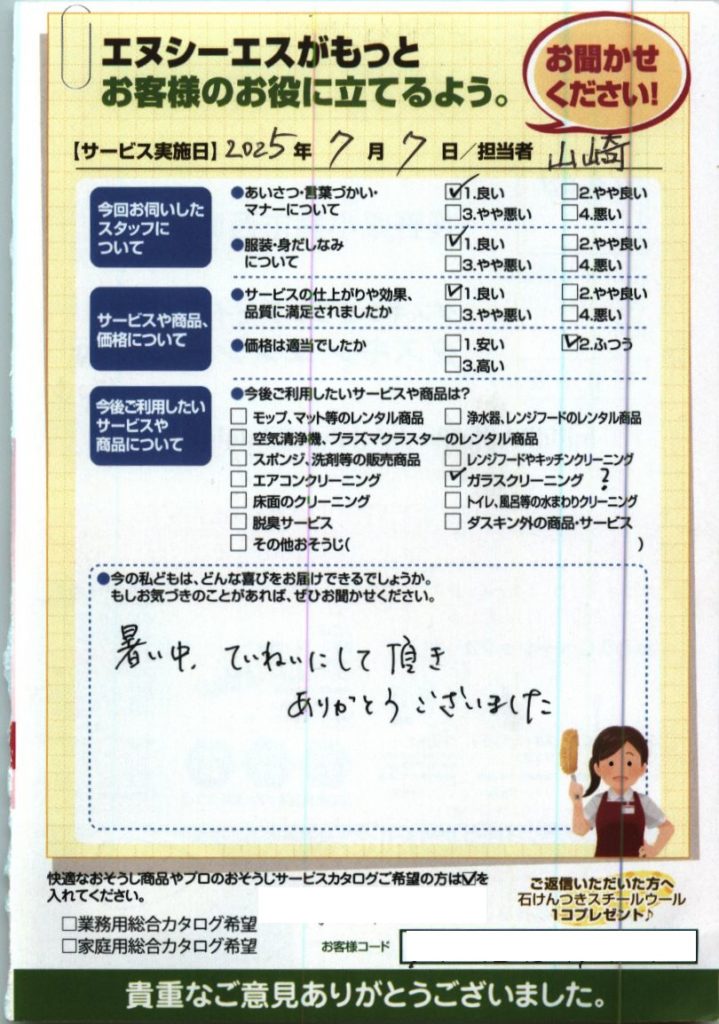 エヌシーエスがもっと
お客様のお役に立てるよう。
お聞かせ
ください!
【サービス実施日】2025年 7月 7日/担当者 山崎
今回お伺いした
スタッフに
ついて
●あいさつ・言葉づかい・
マナーについて
☑1.良い □2.やや良い
□3.やや悪い □4.悪い
●服装・身だしなみ
について
☑1.良い □2.やや良い
□3.やや悪い □4.悪い
サービスや商品、
価格について
●サービスの仕上がりや効果、
品質に満足されましたか
☑1.良い □2.やや良い
□3.やや悪い □4.悪い
●価格は適当でしたか
□1.安い ☑2.ふつう
□3.高い
今後ご利用したい
サービスや
商品について
●今後ご利用したいサービスや商品は?
□ モップ、マット等のレンタル商品 □ 浄水器、レンジフードのレンタル商品
□ 空気清浄機、プラズマクラスターのレンタル商品
□ スポンジ、洗剤等の販売商品 □ レンジフードやキッチンクリーニング
□ エアコンクリーニング ☑ ガラスクリーニング ?
□ 床面のクリーニング □ トイレ、風呂等の水まわりクリーニング
□ 脱臭サービス □ ダスキン外の商品・サービス
□ その他おそうじ( )
●今の私どもは、どんな喜びをお届けできるでしょうか。
もしお気づきのことがあれば、ぜひお聞かせください。
暑い中、ていねいにして頂き
ありがとうございました
快適なおそうじ商品やプロのおそうじサービスカタログご希望の方は☑を
入れてください。
□業務用総合カタログ希望
□家庭用総合カタログ希望
お客様コード
ご返信いただいた方へ
石けんつきスチールウール
1コプレゼント♪
貴重なご意見ありがとうございました。